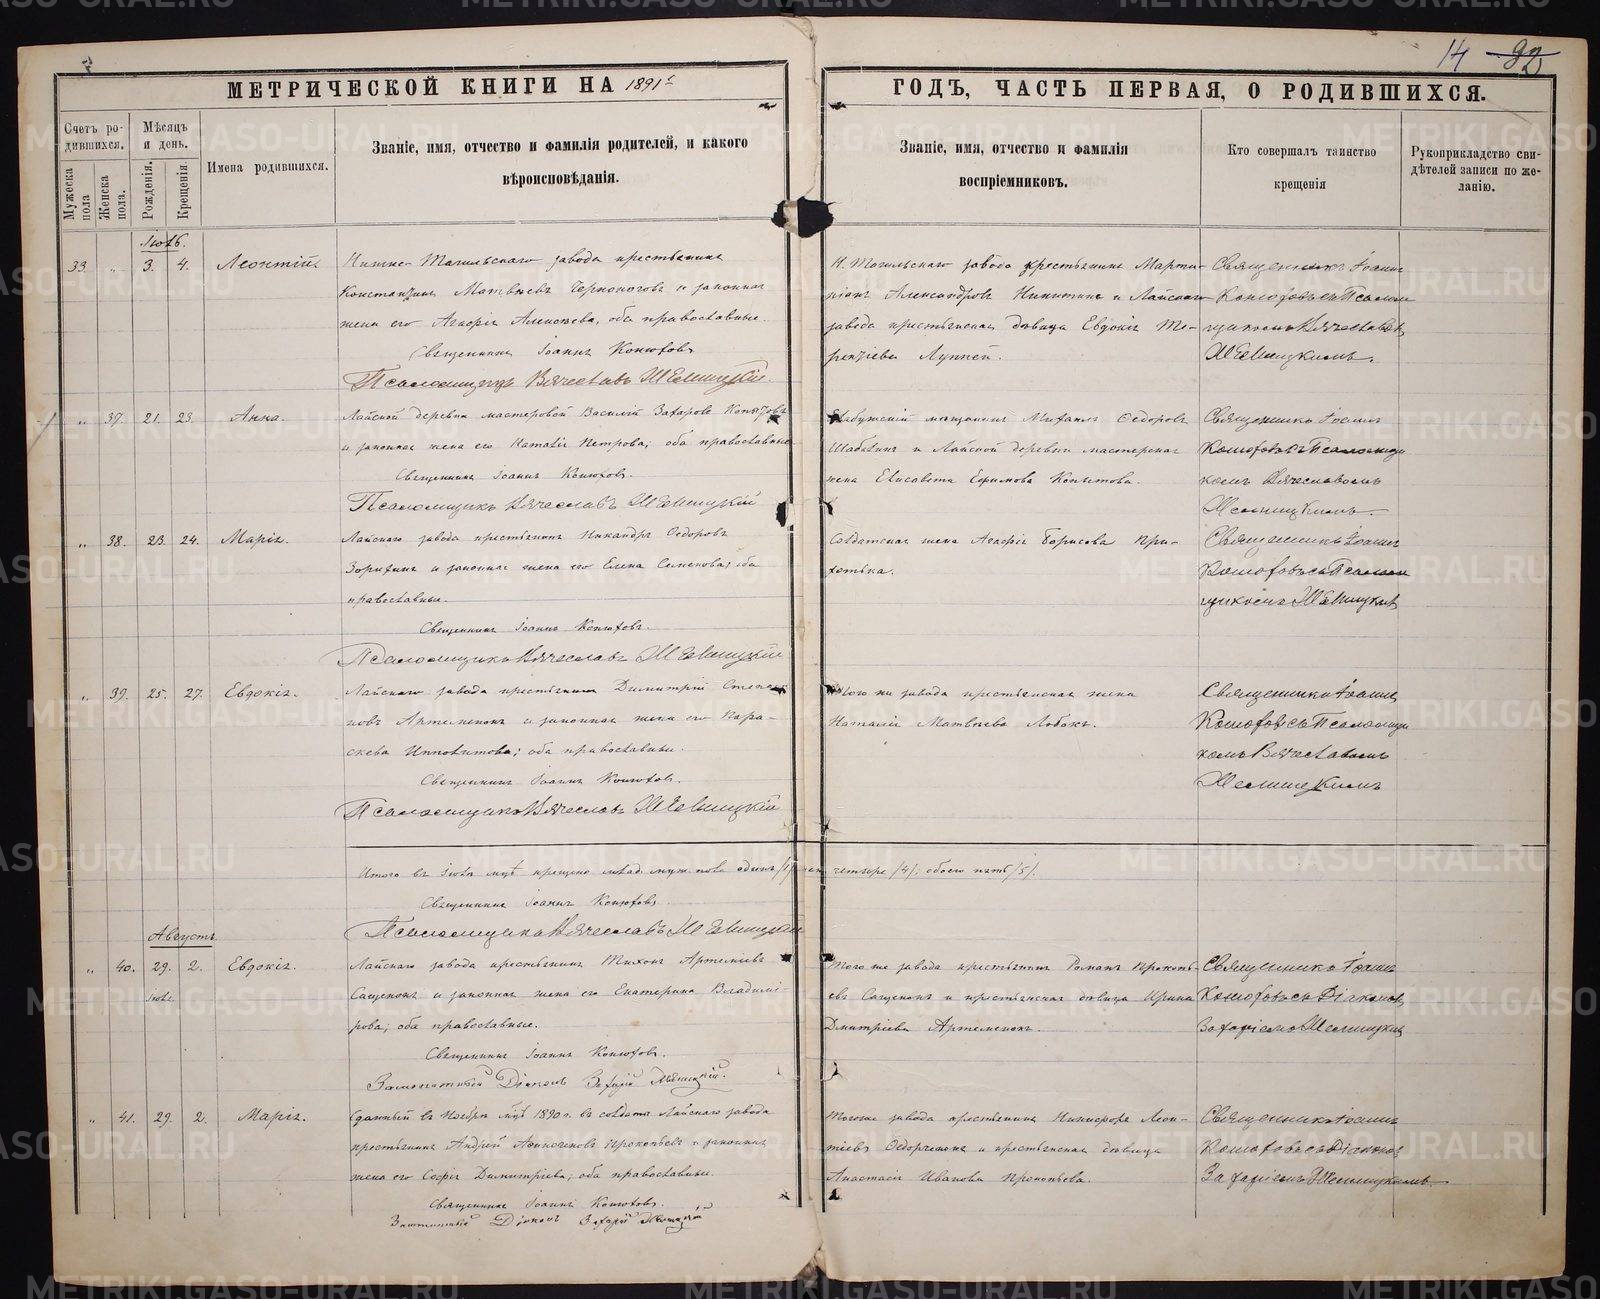 14 92
МЕТРИЧЕСКОЙ КНИГИ НА 1891 г
ГОДЪ, ЧАСТЬ ПЕРВАЯ, О РОДИВШИХСЯ.
Счетъ ро-
дившихся.
Мужеска
пола
Женска
пола.
Мѣсяцъ
и день.
Рожденія.
Крещенія.
Имена родившихся.
Званіе, имя, отчество и фамилія родителей, и какого
вѣроисповѣданія.
Званіе, имя, отчество и фамилія
воспріемниковъ.
Кто совершалъ таинство
крещенія
Рукоприкладство сви-
дѣтелей записи по же-
ланію.
33 " 3. 4. Леонтій.
Нижне-Тагильскаго завода крестьянинъ
Константинъ Матвѣевъ Черноноговъ и законная
жена его Агафія Алексѣева, оба православные.
Священникъ Іоаннъ Конюховъ
Псаломщикъ Вячеславъ
Н. Тагильскаго завода крестьянинъ Марти-
ніанъ Александровъ Никитинъ и Лайскаго
завода крестьянская дѣвица Евдокія Те-
рентіева
Священникъ Іоаннъ
Конюховъ съ Псалом
щикомъ Вячеславом
" 37. 21. 23. Анна.
Лайской деревни мастеровой Василій Захаровъ Копытовъ
и законная жена его Наталія Петрова; оба православные
Священникъ Іоаннъ Конюховъ.
Псаломщикъ Вячеславъ
Елабужскій мѣщанинъ Михаилъ Ѳедоровъ
Шабалинъ и Лайской деревни мастерская
жена Елисавета Ефимова Копытова.
Священникъ Іоаннъ
Конюховъ съ Псаломщи
комъ Вячеславомъ
" 38. 23. 24. Марія.
Лайскаго завода крестьянинъ Никандръ Ѳедоровъ
Зорихинъ и законная жена его Елена Семенова; оба
православные.
Священникъ Іоаннъ Конюховъ.
Псаломщикъ Вячеславъ
Солдатская жена Агафія Борисова При-
ходька.
Священникъ Іоаннъ
Конюховъ съ Псалом
щикомъ
" 39. 25. 27. Евдокія.
Лайскаго завода крестьянинъ Димитрій Степа
новъ Артеменокъ и законная жена его Пара-
скева Ипполитова; оба православные.
Священникъ Іоаннъ Конюховъ.
Псаломщикъ Вячеславъ
Того же завода крестьянская жена
Наталія Матвѣева Лобокъ.
Священникъ Іоаннъ
Конюховъ съ Псаломщи
комъ Вячеславомъ
Итого въ іюлѣ мцѣ крещено млад. муж. пола одинъ /1/
четыре /4/; обоего пять /5/.
Священникъ Іоаннъ Конюховъ
Псаломщикъ Вячеславъ
Августъ
" 40. 29. 2. Евдокія.
Лайскаго завода крестьянинъ Тихонъ Артеміевъ
Сащенокъ и законная жена его Екатерина Владимі-
рова; оба православные.
Священникъ Іоаннъ Конюховъ.
Заштатный Діаконъ
Того же завода крестьянинъ Романъ Прокопь-
евъ Сащенокъ и крестьянская дѣвица Ирина
Дмитріева Артеменокъ.
Священникъ Іоаннъ
Конюховъ съ Діаконом
" 41. 29. 2. Марія.
Сданный въ Ноябрѣ мцѣ 1890 г. въ солдаты Лайскаго завода
крестьянинъ Андрей Афиногеновъ Прокопьевъ и законная
жена его Софія Димитріева; оба православные.
Священникъ Іоаннъ Конюховъ.
Заштатный Діаконъ
Тогоже завода крестьянинъ Никифоръ Леон-
тіевъ Ѳедорченокъ и крестьянская дѣвица
Анастасія Иванова Прокопьева.
Священникъ Іоаннъ
Конюховъ съ Діакономъ
METRIKI.GASO-URAL.RU